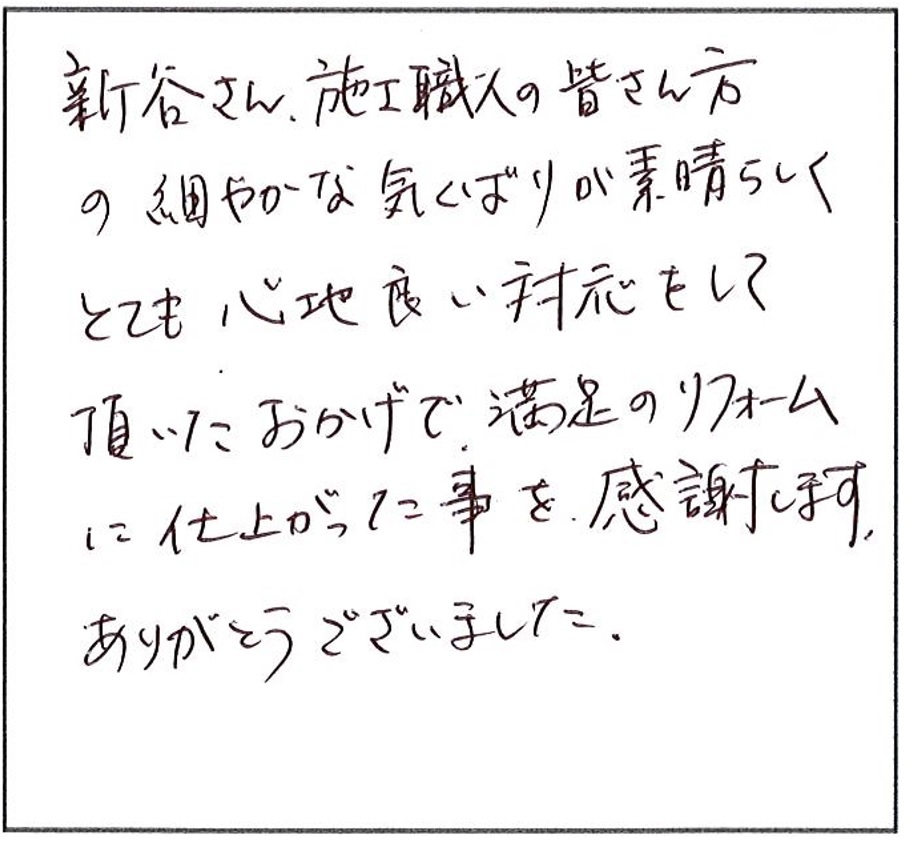 新谷さん、施工職人の皆さん方
の細やかな気くばりが素晴らしく
とても心地良い対応をして
頂いたおかげで、満足のリフォーム
に仕上がった事を、感謝します、
ありがとうございました。